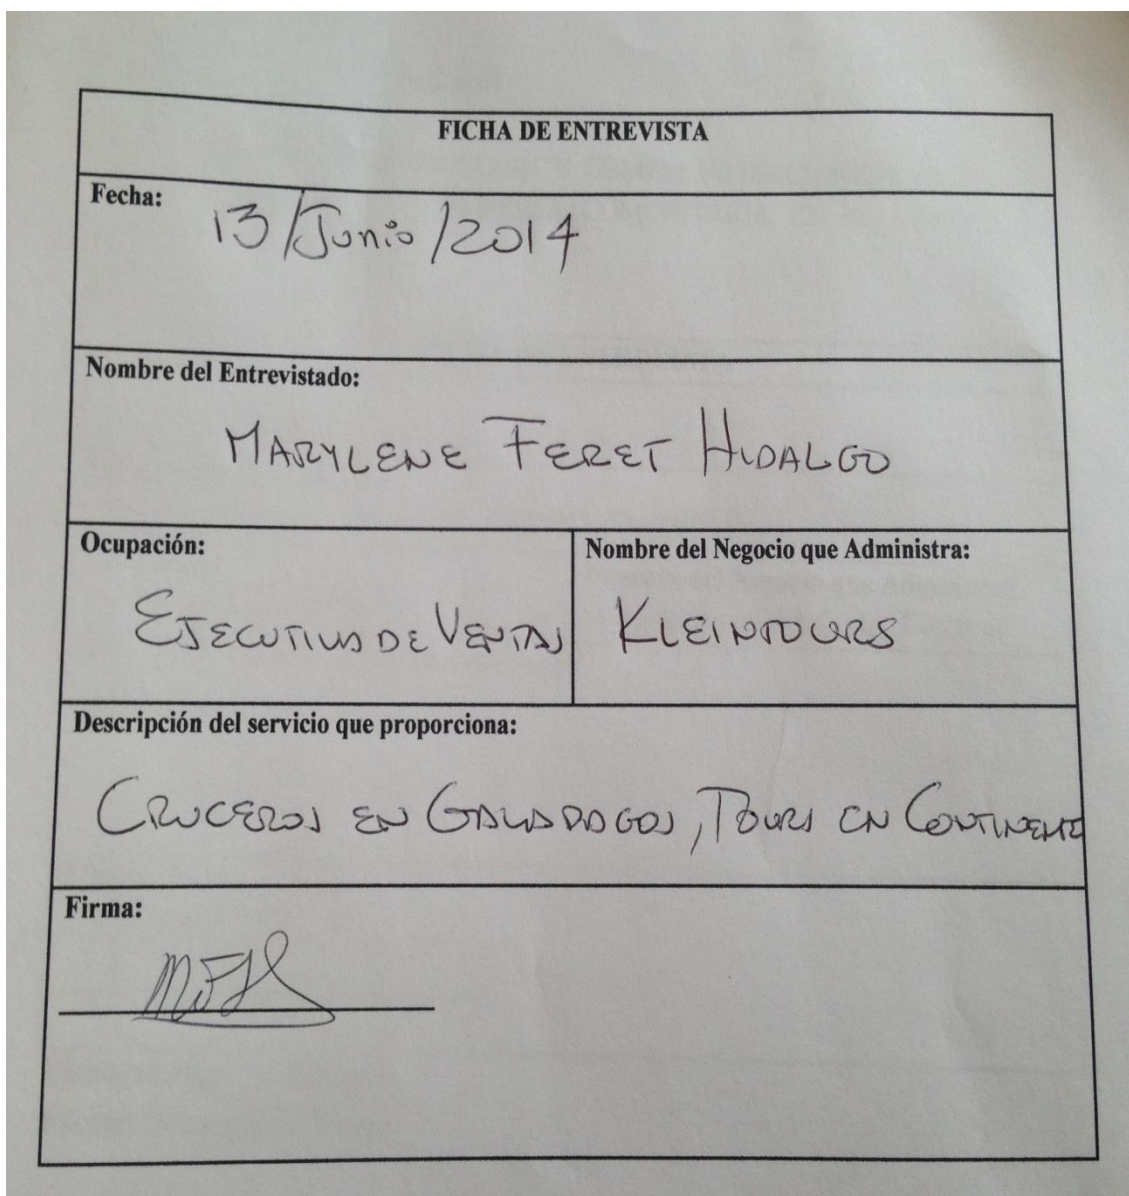 FICHA DE ENTREVISTA
Fecha:
13/Junio/2014
Nombre del Entrevistado:
MARYLENE FERET HIDALGO
Ocupación:
EJECUTIVO DE VENTAS
Nombre del Negocio que Administra:
KLEINTOURS
Descripción del servicio que proporciona:
CRUCEROS EN GALAPAGOS, TOURS EN CONTINENTE
Firma: